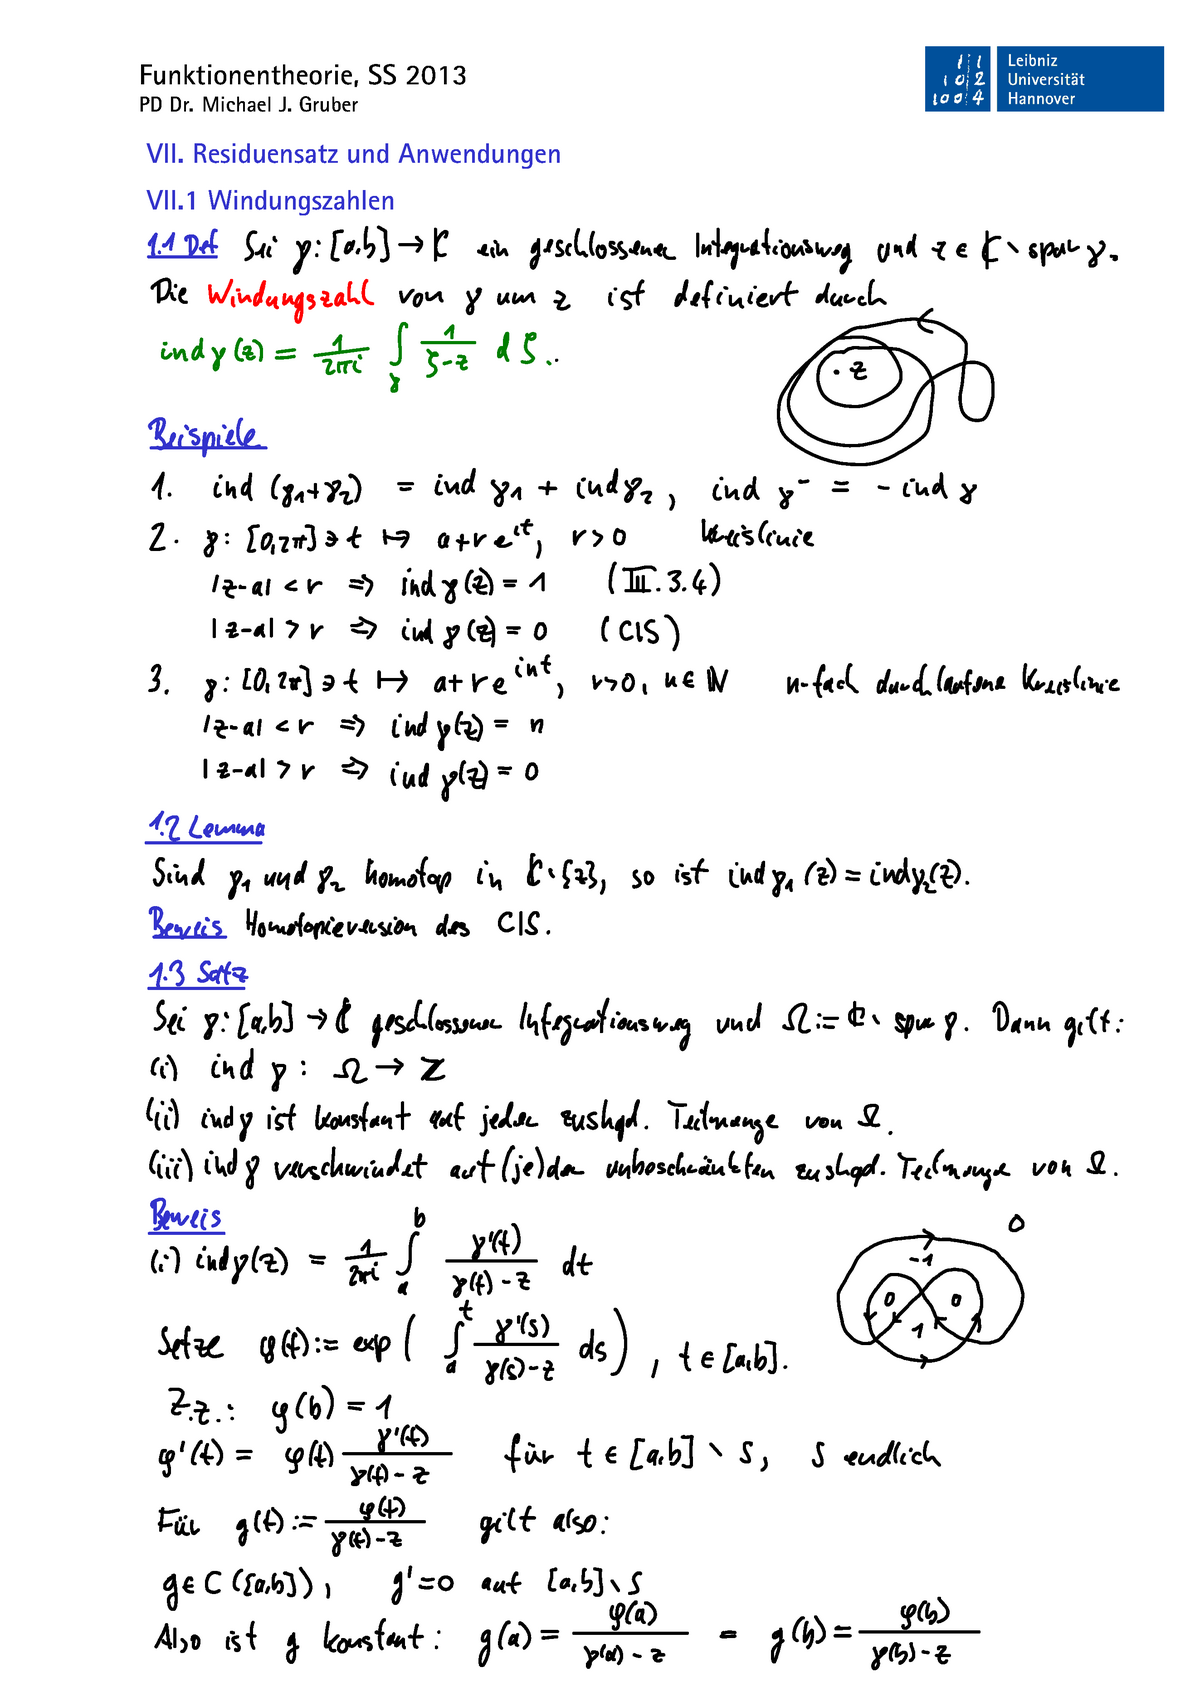 Funktionentheorie, SS 2013
PD Dr. Michael J. Gruber
1 1
1 0 2
1 0 0 4
Leibniz
Universität
Hannover
VII. Residuensatz und Anwendungen
VII.1 Windungszahlen
1.1 Def Sei γ: [a,b] → ℂ ein geschlossener Integrationsweg und z ∈ ℂ \ spur γ.
Die Windungszahl von γ um z ist definiert durch
ind γ(z) = 1/(2πi) ∫_γ 1/(ζ-z) dζ.
· z
Beispiele
1. ind (γ₁+γ₂) = ind γ₁ + ind γ₂, ind γ⁻ = - ind γ
2. γ: [0,2π] ∋ t ↦ a+re^{it}, r>0 Kreislinie
|z-a| < r ⇒ ind γ(z) = 1 (III.3.4)
|z-a| > r ⇒ ind γ(z) = 0 (CIS)
3. γ: [0,2π] ∋ t ↦ a+re^{int}, r>0, n∈ℕ n-fach durchlaufene Kreislinie
|z-a| < r ⇒ ind γ(z) = n
|z-a| > r ⇒ ind γ(z) = 0
1.2 Lemma
Sind γ₁ und γ₂ homotop in ℂ\{z}, so ist ind γ₁(z) = ind γ₂(z).
Beweis Homotopieversion des CIS.
1.3 Satz
Sei γ: [a,b] → ℂ geschlossener Integrationsweg und Ω := ℂ \ spur γ. Dann gilt:
(i) ind γ : Ω → ℤ
(ii) ind γ ist konstant auf jeder zushgd. Teilmenge von Ω.
(iii) ind γ verschwindet auf (je)der unbeschränkten zushgd. Teilmenge von Ω.
Beweis
(i) ind γ(z) = 1/(2πi) ∫_a^b γ'(t)/(γ(t)-z) dt
0
-1
0 0
1
Setze φ(t) := exp( ∫_a^t γ'(s)/(γ(s)-z) ds ), t ∈ [a,b].
Z.z.: φ(b) = 1
φ'(t) = φ(t) γ'(t)/(γ(t)-z) für t ∈ [a,b] \ S, S endlich
Für g(t) := φ(t)/(γ(t)-z) gilt also:
g∈C([a,b]), g'=0 auf [a,b]\S
Also ist g konstant: g(a) = φ(a)/(γ(a)-z) = g(b) = φ(b)/(γ(b)-z)